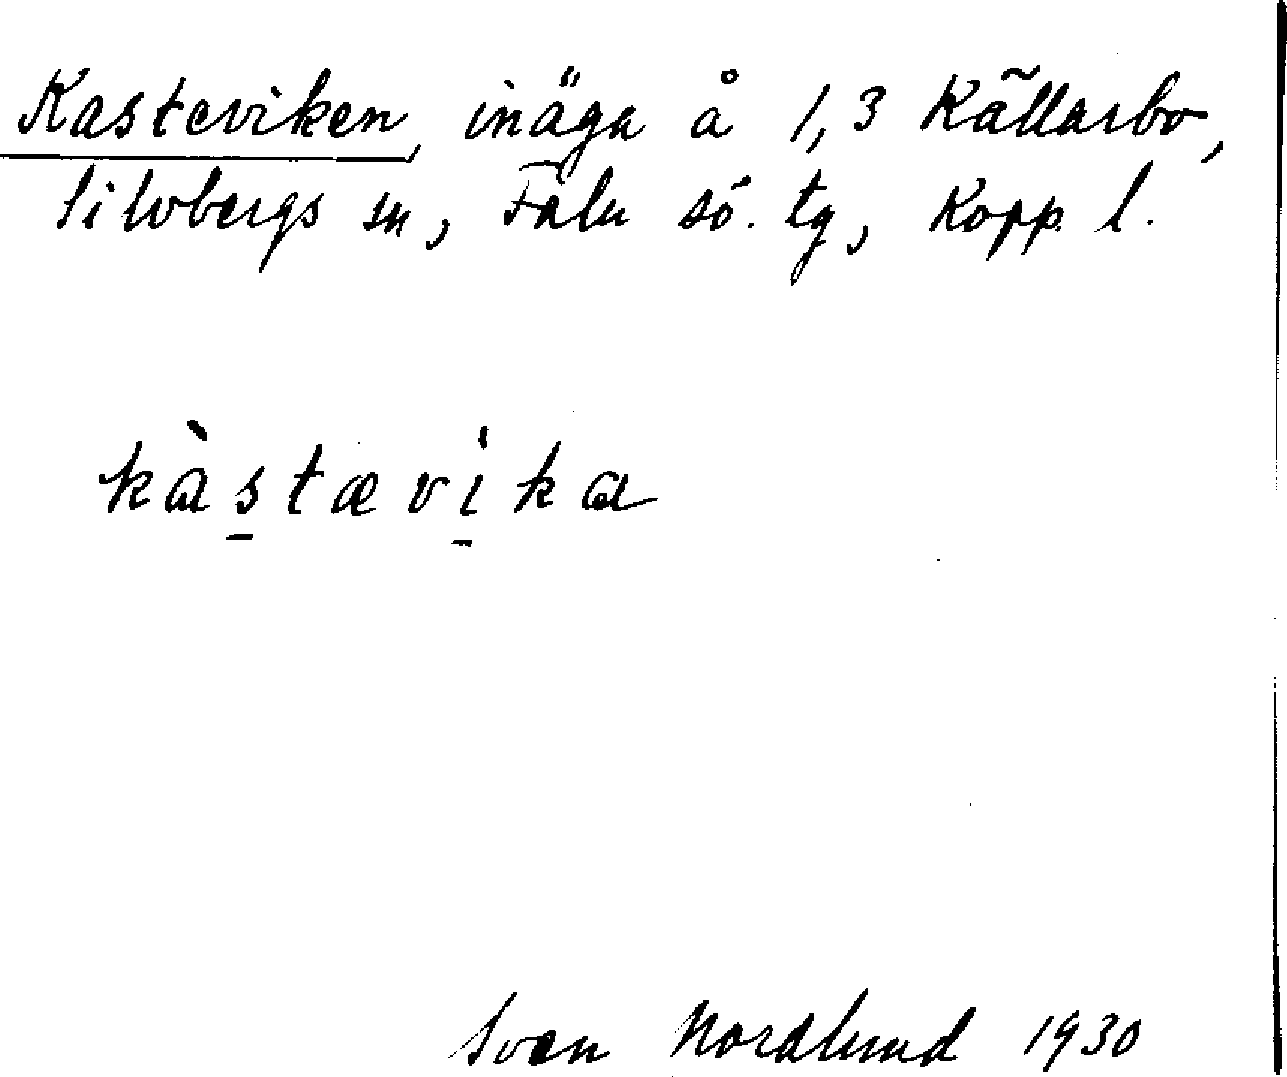 Kasteviken, inäga å 1,3 Källarbo,
Silvbergs sn, Falu sö. tg, Kopp. l.
kàstævika
Sven Nordlund 1930